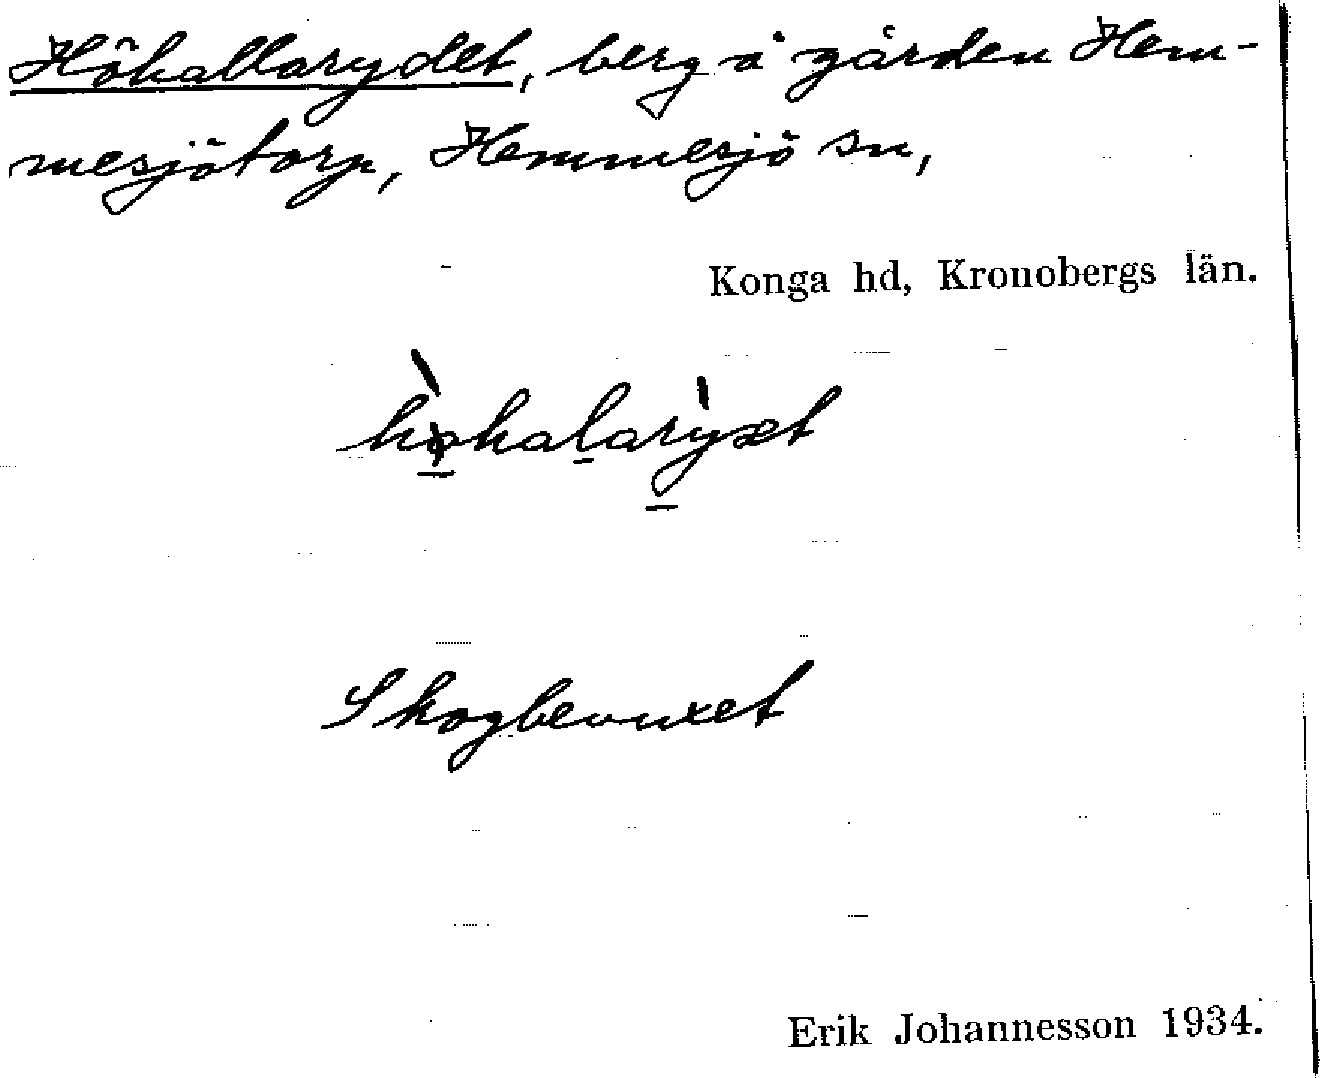 Hökallarydet, berg å gården Hem-
mesjötorp, Hemmesjö sn,
Konga hd, Kronobergs län.
hø̀kalarýæt
Skogbevuxet
Erik Johannesson 1934.